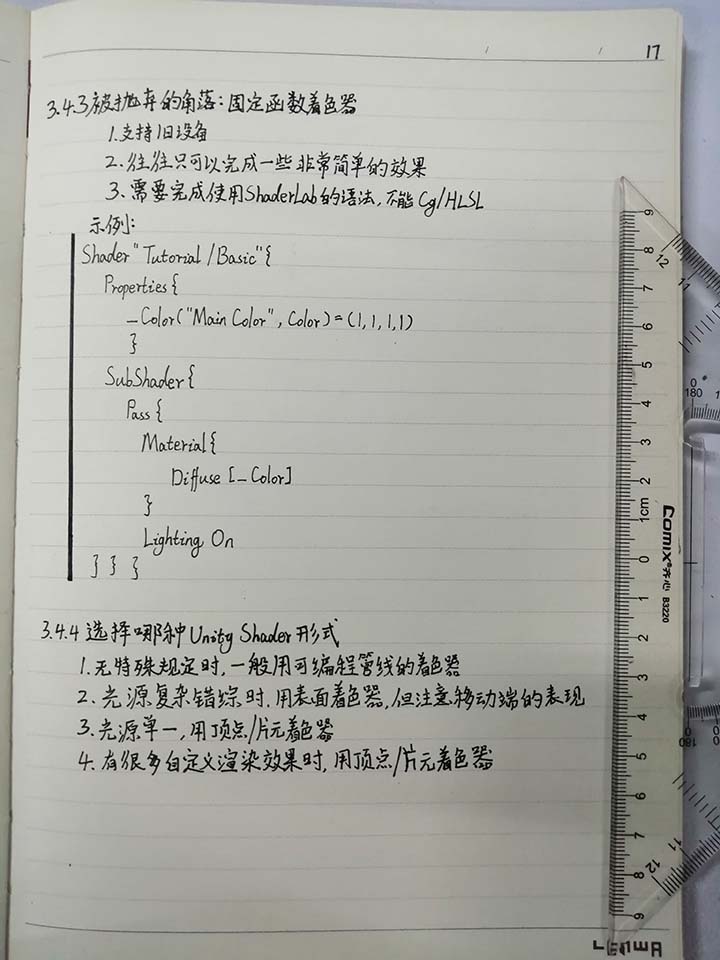 17
3.4.3 被抛弃的角落:固定函数着色器
1.支持旧设备
2.往往只可以完成一些非常简单的效果
3.需要完成使用ShaderLab的语法,不能Cg/HLSL
示例:
Shader"Tutorial/Basic"{
Properties{
_Color("Main Color", Color)=(1,1,1,1)
}
SubShader{
Pass{
Material{
Diffuse [_Color]
}
Lighting On
} } }
3.4.4 选择哪种Unity Shader形式
1.无特殊规定时,一般用可编程管线的着色器
2.光源复杂错综时,用表面着色器,但注意移动端的表现
3.光源单一,用顶点/片元着色器
4.有很多自定义渲染效果时,用顶点/片元着色器
9 8 7 6 5 4 3 2 1cm 0 1 2 3 4 5 6 7 8 9
COMIX®齐心 B3220
12 11
0
180
0
180
11
12